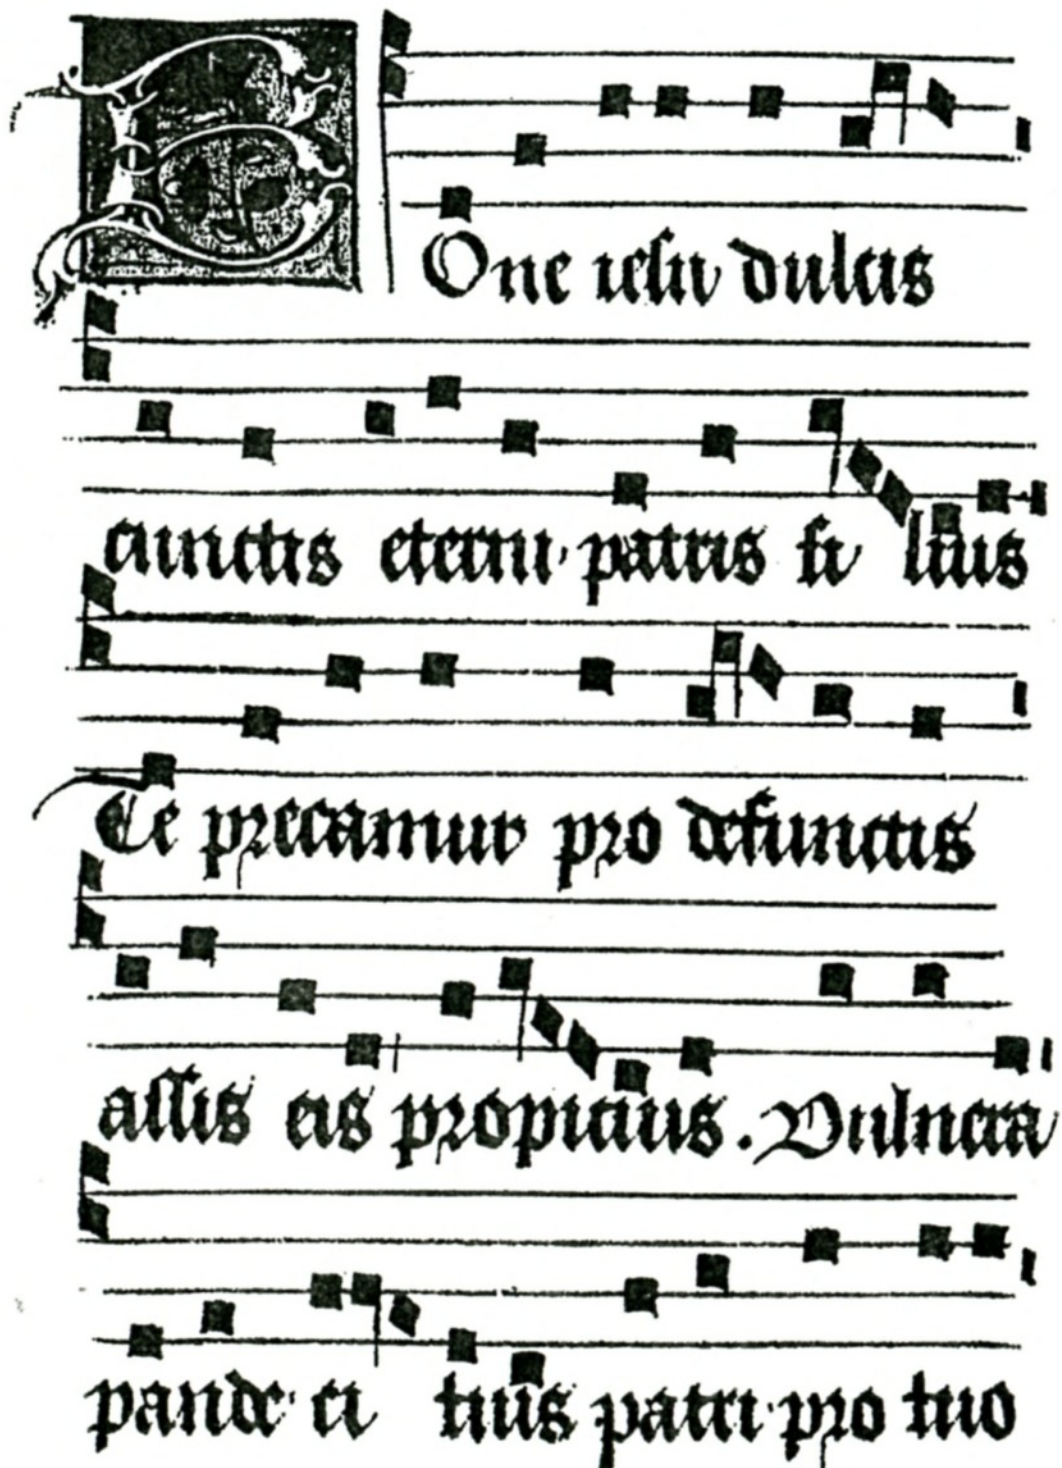 BOne iesu dulcis
cunctis eterni patris fi lius
Te precamur pro defunctis
assis eis propicius. Vulnera
pande ci tius patri pro tuo